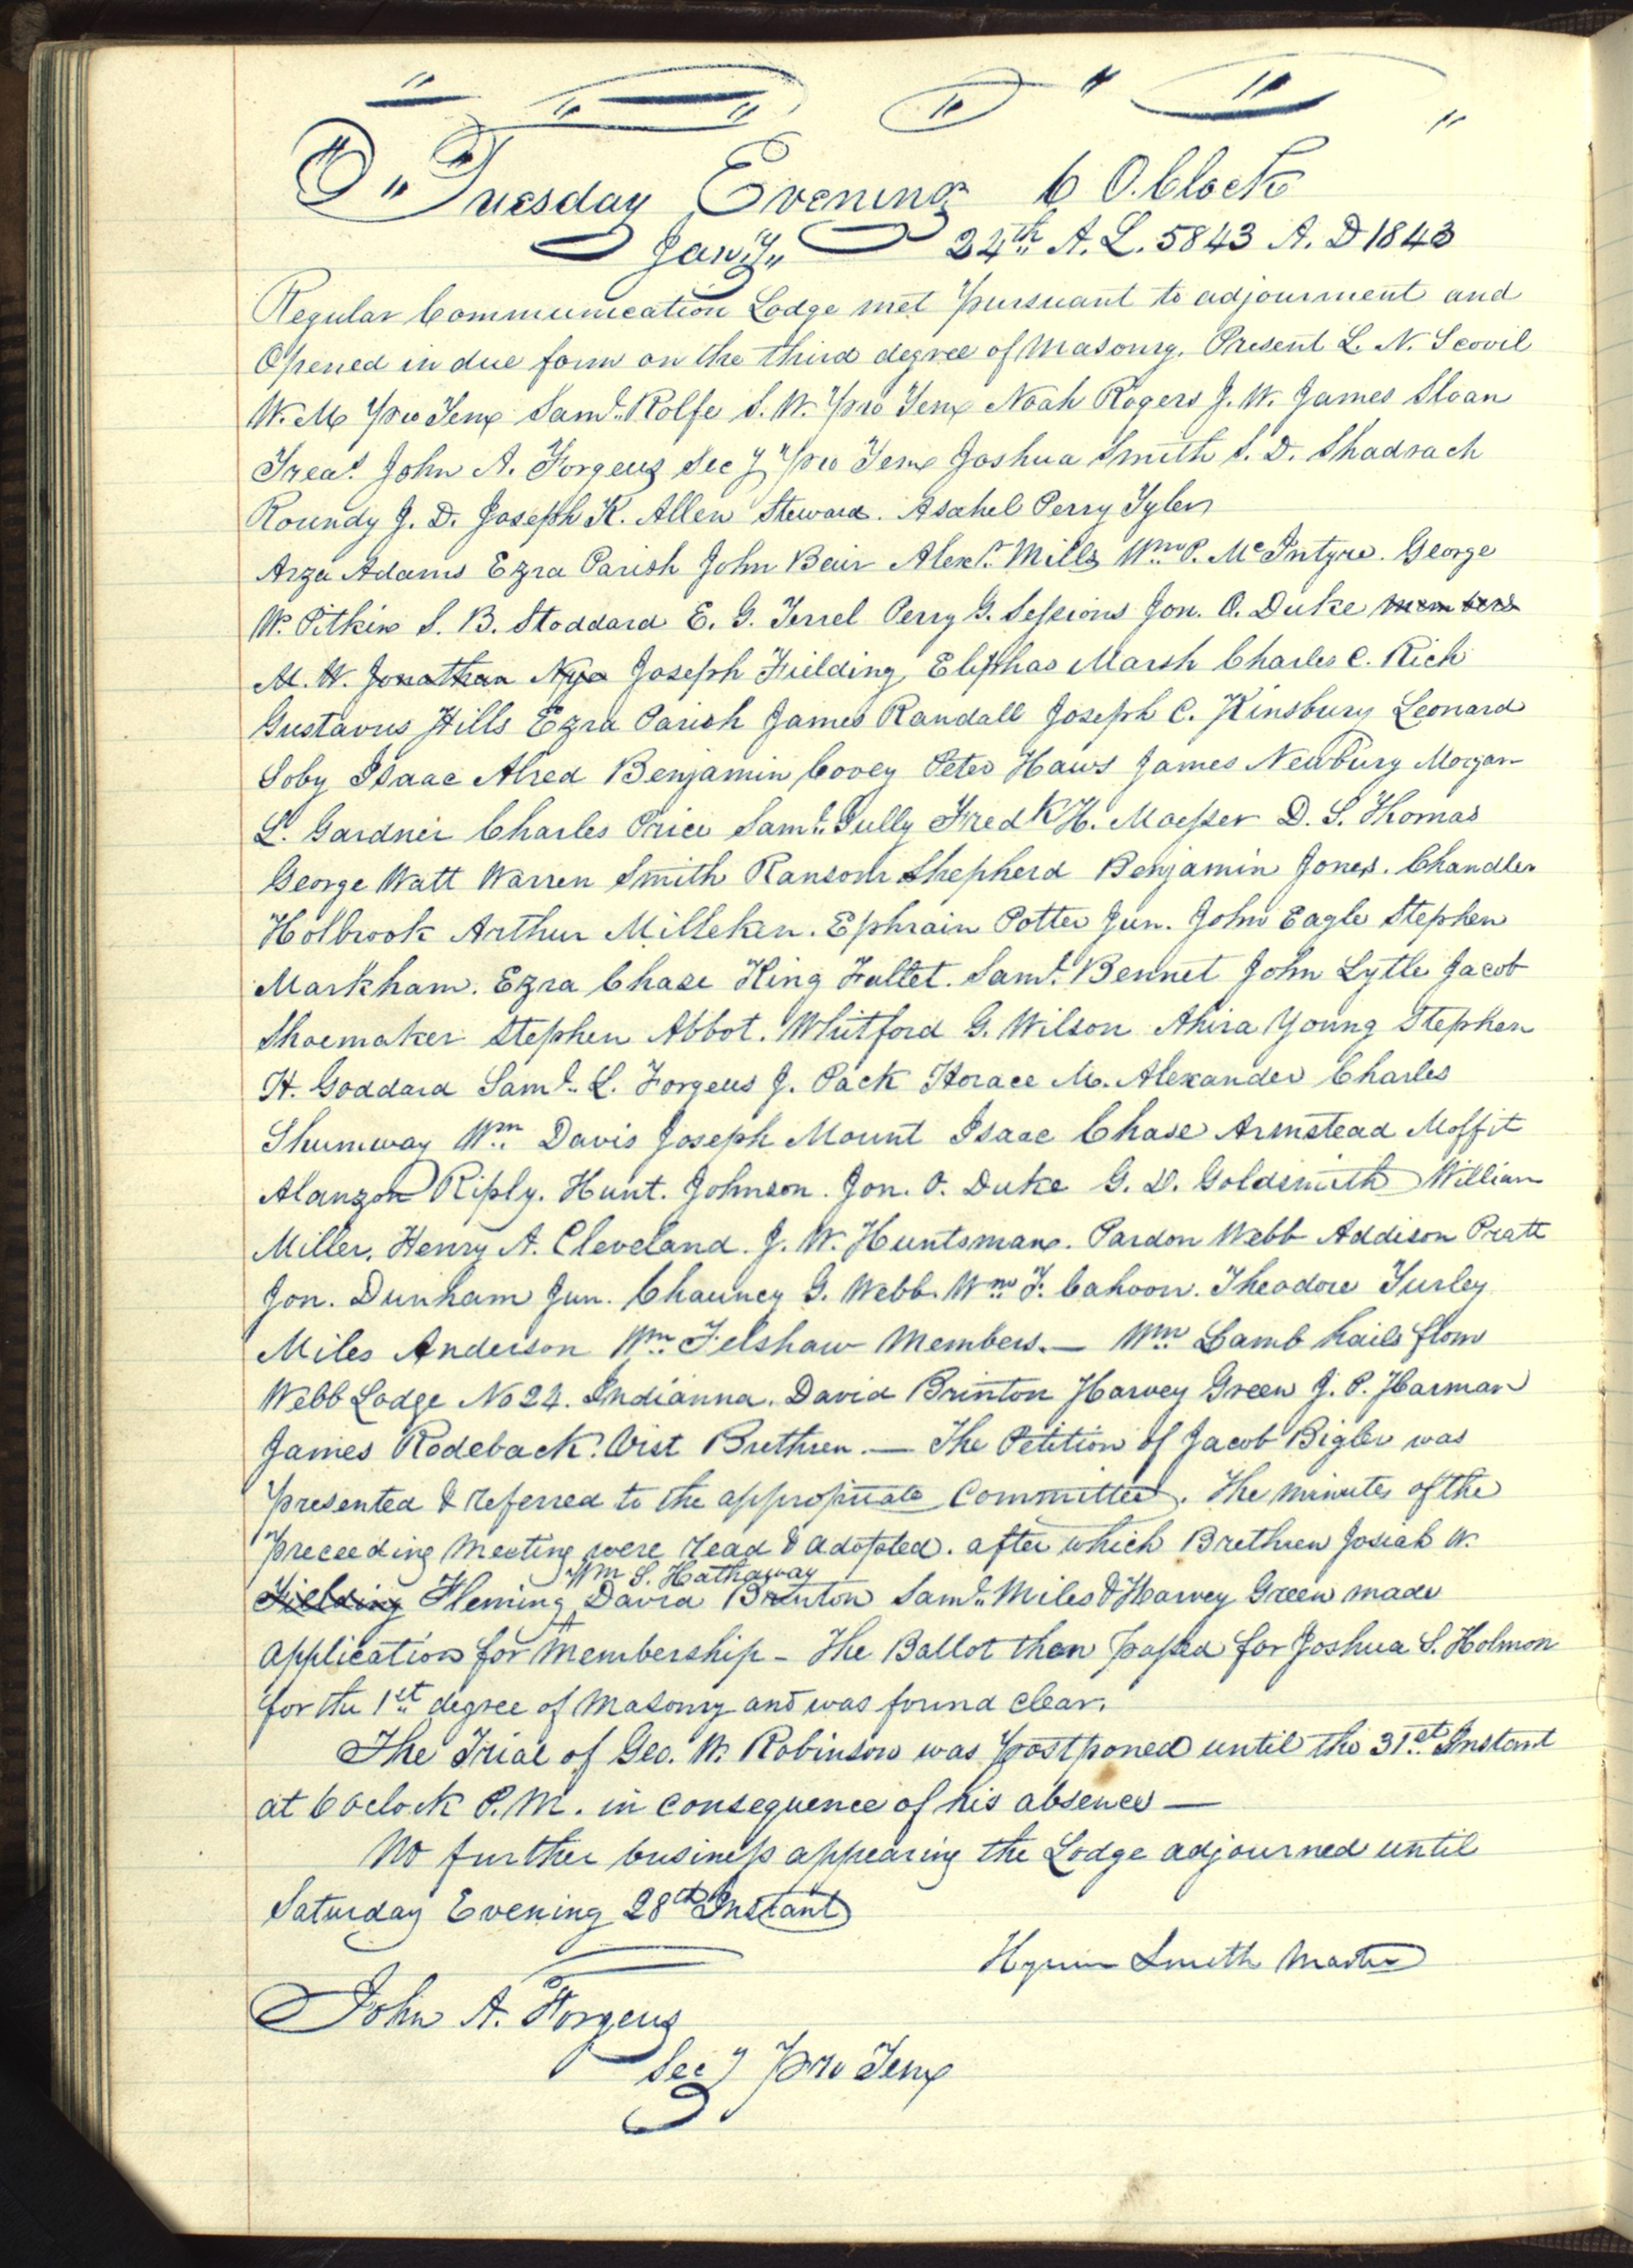 Tuesday Evening 6 O.Clock
Jany. 24th A. L. 5843 A. D 1843
Regular Communication Lodge met pursuant to adjourment and
Opened in due form on the third degree of Masonry. Present L. N. Scovil
W. M pro Tem Saml. Rolfe S. W. pro Tem Noah Rogers J. W. James Sloan
Treas. John A. Forgeus Secy pro Tem Joshua Smith S. D. Shadrach
Roundy J. D. Joseph K. Allen Steward. Asahel Perry Tyler
Arza Adams Ezra Parish John Bair Alexr. Mills Wm. P. McIntyre. George
W. Pitkin S. B. Stoddard E. G. Terrel Perry G. Sessions Jon. O. Duke members
M. W. Jonathan Nye Joseph Fielding Eliphas Marsh Charles C. Rich
Gustavus Hills Ezra Parish James Randall Joseph C. Kinsbury Leonard
Soby Isaac Alred Benjamin Covey Peter Haws James Newbury Morgan
L. Gardner Charles Price Saml. Gully Fredk H. Moesser D. S. Thomas
George Watt Warren Smith Ransom Shepherd Benjamin Jones. Chandler
Holbrook Arthur Milleken. Ephrain Potter Jun. John Eagle Stephen
Markham. Ezra Chase King Follet. Saml. Bennet John Lytle Jacob
Shoemaker Stephen Abbot. Whitford G. Wilson Ahira Young Stephen
H. Goddard Saml. L. Forgeus J. Pack Horace M. Alexander Charles
Shumway Wm. Davis Joseph Mount Isaac Chase Armstead Moffit
Alanzon Riply. Hunt. Johnson. Jon. O. Duke G. D. Goldsmith William
Miller. Henry A. Cleveland. J. W. Huntsman. Pardon Webb Addison Pratt
Jon. Dunham Jun. Chauncy G. Webb. Wm. F. Cahoon. Theodore Turley
Miles Anderson Wm. Felshaw Members. — Wm. Lamb hails from
Webb Lodge No 24. Indianna. David Brinton Harvey Green J. P. Harman
James Rodeback. Vist Brethren. — The Petition of Jacob Bigler was
presented & referred to the appropriate Committee. The minutes of the
preceeding Meeting were read & adopted. after which Brethren Josiah W.
Wm S. Hathaway
Fielding Fleming David Brinton Saml. Miles & Harvey Green made
application for membership - The Ballot then passed for Joshua S. Holmon
for the 1st degree of Masonry and was found clear.
The Trial of Geo. W. Robinson was postponed until the 31st. Instant
at 6 oclock P. M. in consequence of his absence —
No further business appearing the Lodge adjourned until
Saturday Evening 28th Instant
Hyrum Smith Master
John A. Forgeus
Secy pro Tem